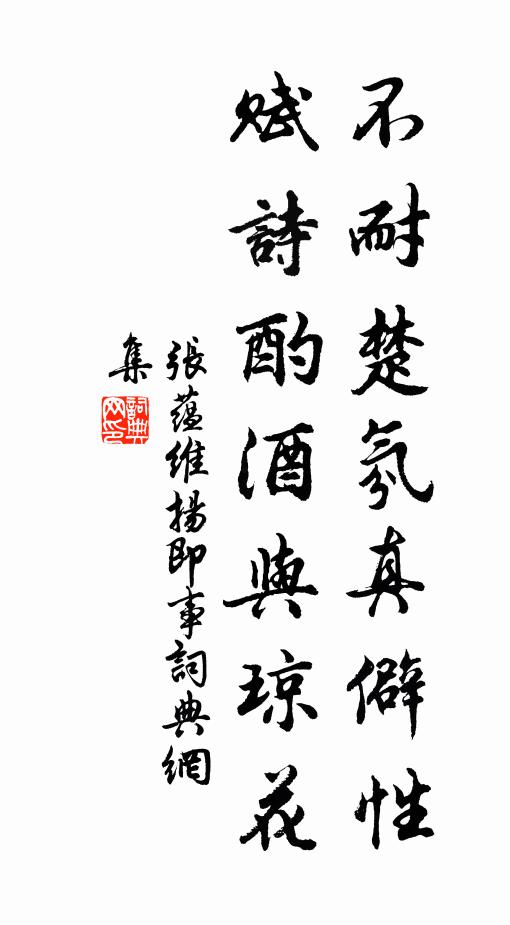 不耐楚氛真僻性
賦詩酌酒與琼花
張蘊維揚即事詞典網
集
詞典
网印